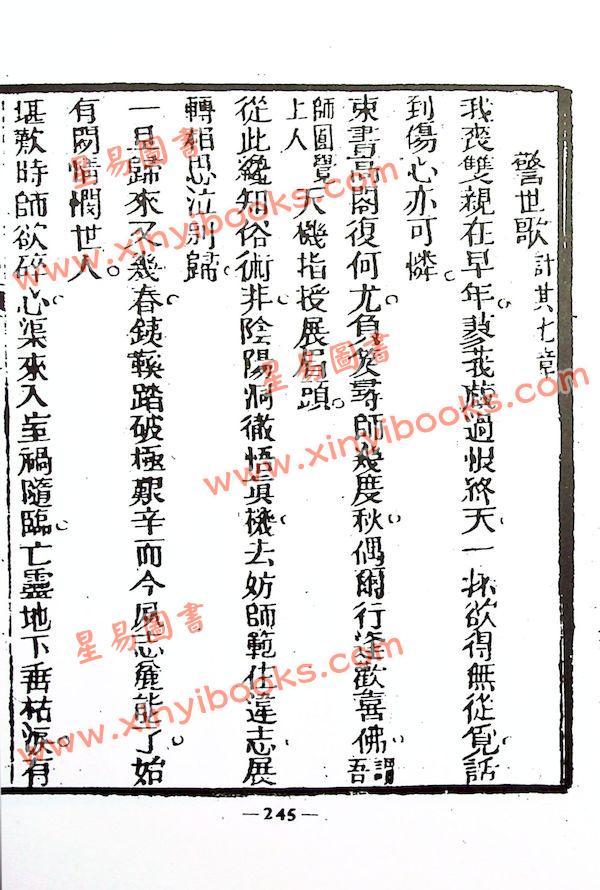 警世歌 計其七章
我喪雙親在早年。蓼莪過恨終天。一欲得無從覓。話
到傷心亦可憐。
東閣復何尤。負笈尋師幾度秋。偶爾行逢歡喜佛。謂吾
師圓覺上人 天機指授展眉頭。
從此纔知俗術非。陰陽洞徹悟真機。去妨師範住違志。展
轉相思泣別歸。
一旦歸來又幾春。銕鞋踏破極艱辛。而今夙志麄能了。始
有閑情憫世人。
堪歎時師欲碎心。渠來入室禍隨臨。亡靈地下垂枯淚。有
—245—
星易圖書
www.xinyibooks.com
星易圖書
www.xinyibooks.com
星易圖書
www.xinyibooks.com